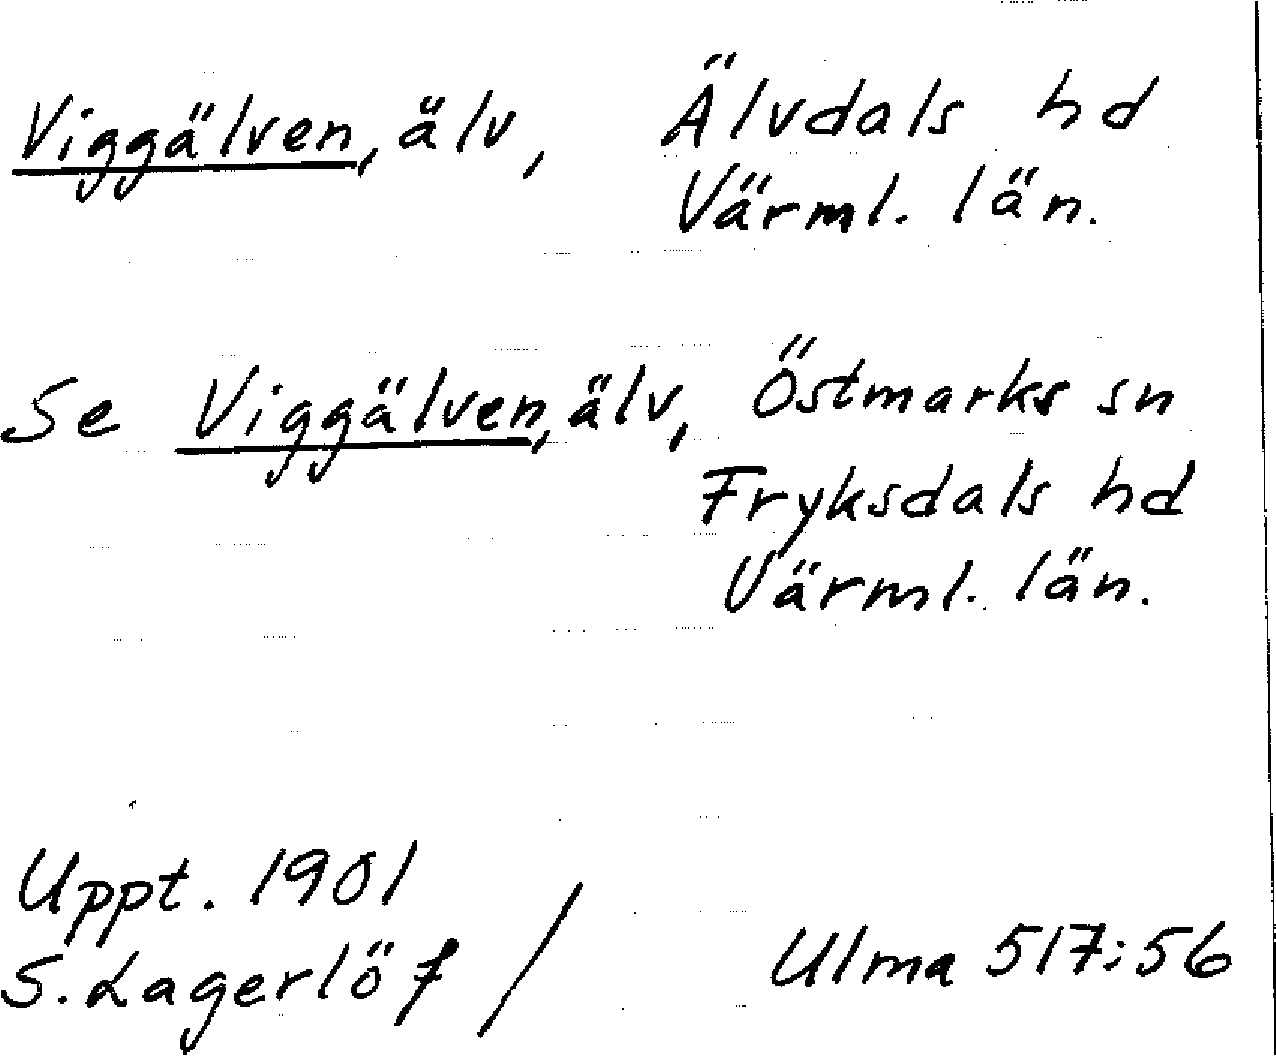 Viggälven, älv, Älvdals hd
Värml. län.
Se Viggälven, älv, Östmarks sn
Fryksdals hd
Värml. län.
Uppt. 1901
S. Lagerlöf / Ulma 517:56